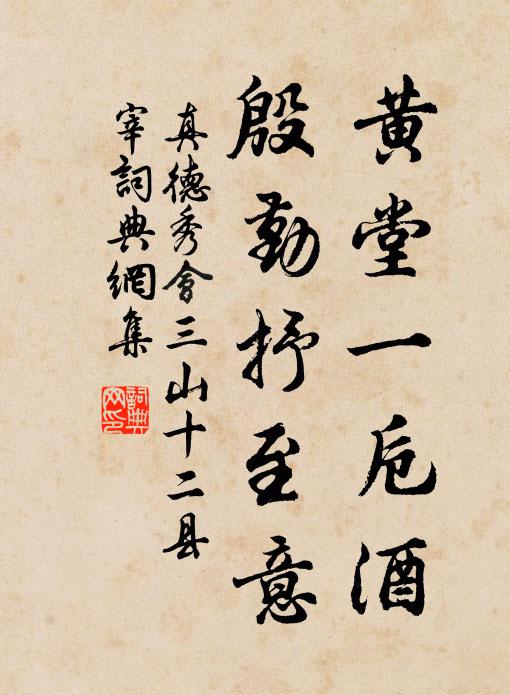 黄堂一卮酒
殷勤抒至意
真德秀會三山十二县
宰詞典網集
詞典网印